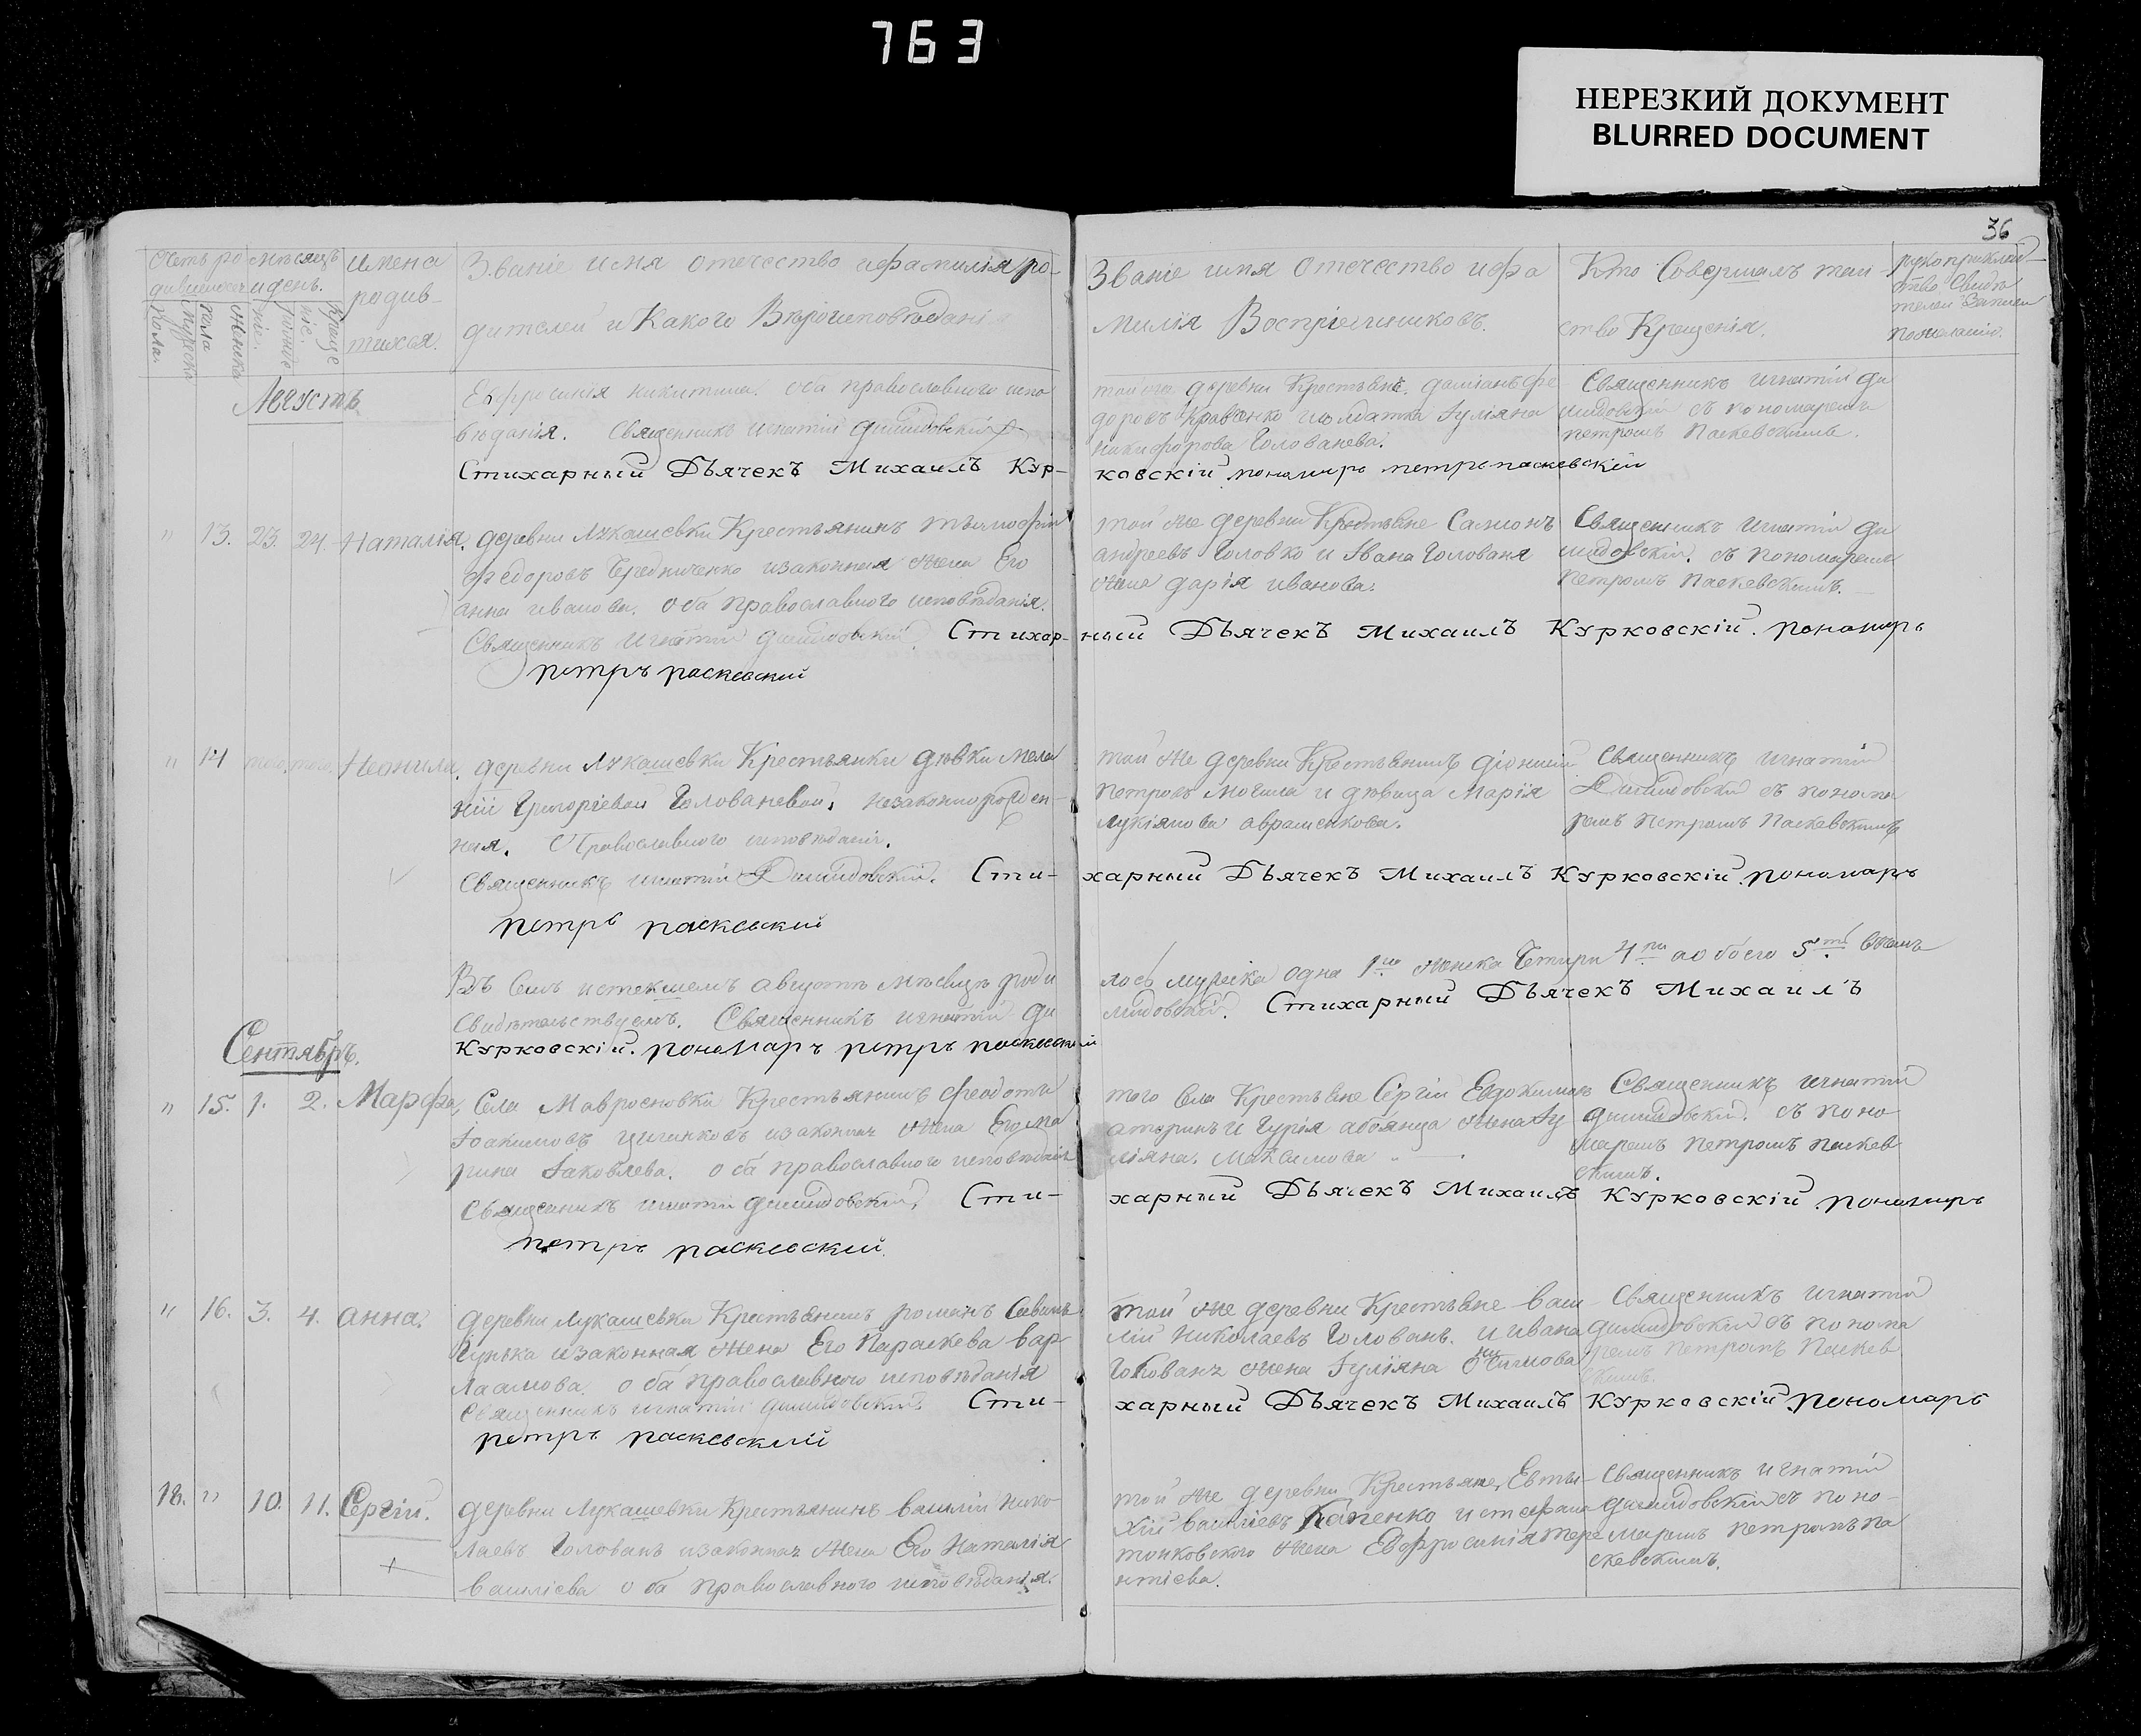 763
НЕРЕЗКИЙ ДОКУМЕНТ
BLURRED DOCUMENT
36
Счетъ ро
дившихся
мужеска
пола.
женска
пола
мѣсяцъ
и день.
рожде
ніе.
креще
ніе.
имена
родив
шихся.
Званіе имя отечество ифамилія ро-
дителей и Какого Вѣроисповѣданія
Званіе имя Отечество ифа
милія Воспріемниковъ.
Кто Совершалъ таи
ство Крещенія.
рукоприклад
ство Свидѣ
телей Записи
пожеланію.
Августъ
Евфросинія никитина. оба православного испо
вѣданія. Священникъ игнатій димидовскій
Стихарный Дьячекъ Михаилъ Кур-
той же деревни Крестьяне. даміанъ фе
доровъ Кравченко исолдатка Іуліяна
никифорова Голованева.
ковскій пономарь петръ паскевскій
Священникъ игнатій ди
мидовскій съ пономаремъ
петромъ Паскевскимъ.
" 13. 23. 24. Наталія. деревни Лукашевки Крестьянинъ тимофій
федоровъ Чередниченко изаконная жена Его
анна иванова. оба православного исповѣданія.
Священникъ Игнатій димидовскій. Стихар-
петръ паскевский
той же деревни Крестьяне Самионъ
андреевъ Головко и Ивана Голованя
жена дарія иванова.
ный Дьячекъ Михаилъ Курковскій. пономарь
Священникъ игнатій ди
мидовскій. съ пономаремъ
петромъ паскевскимъ.
" 14 того. того. Неонила. деревни Лукашевки Крестьянки дѣвки Мела
ніи Григоріевой Голованевой, незаконнорожден-
ная. Православного исповѣданія.
Священникъ игнатій Димидовскій. Сти-
петръ паскевский
той же деревни Крестьянинъ діонисій
Петровъ Могила и дѣвица Марія
Лукіянова авраменкова.
харный Дьячекъ Михаилъ Курковскій. пономаръ
Священникъ игнатій
Димидовскій съ понома
ремъ Петромъ Паскевскимъ
Въ Семъ истекшемъ августѣ мѣсяцѣ роди
лось мужска одна 1на женска Четыри 4ри аобоего 5ть въ чемъ
Свидѣтельствуемъ. Священникъ игнатій ди
мидовскій. Стихарный Дьячекъ Михаилъ
Курковскій. пономаръ петръ паскевский
Сентябрь.
" 15. 1. 2. Марфа. Села Мавросновки Крестьянинъ феодотъ
Іоакимовъ изаконная жена Его Ма
рина Іаковлева. оба православного исповѣданія
Священникъ игнатій димидовскій. Сти-
петръ паскевский.
того Села Крестьяне Сергій Евдокимовъ
и Гурія жена Іу
ліяна. Максимова
харный Дьячекъ Михаилъ Курковскій пономаръ
Священникъ игнатій
димидовскій. съ поно
маремъ петромъ паскев
скимъ.
" 16. 3. 4. анна. деревни Лукашевки Крестьянинъ романъ Савинъ
Гунька изаконная жена Его Параскева Вар-
лаамова. оба православного исповѣданія
Священникъ игнатій димидовскій. Сти-
петръ паскевский
той же деревни Крестьяне Васи
лій Николаевъ Голованъ. и ивана
Голованя жена Іуліяна
харный Дьячекъ Михаилъ Курковскій пономаръ
Священникъ игнатій
димидовскій съ понома
ремъ петромъ Паскев
скимъ.
18. " 10. 11. Сергій. деревни Лукашевки Крестьянинъ василій нико-
лаевъ Голованъ изаконная жена Его Наталія
василіева оба православного исповѣданія.
той же деревни Крестьяне, Евти-
хій василіевъ Капенко истефана
жена Евфросинія тере
нтіева.
Священникъ игнатій
димидовскій съ поно-
маремъ петромъ па
скевскимъ.